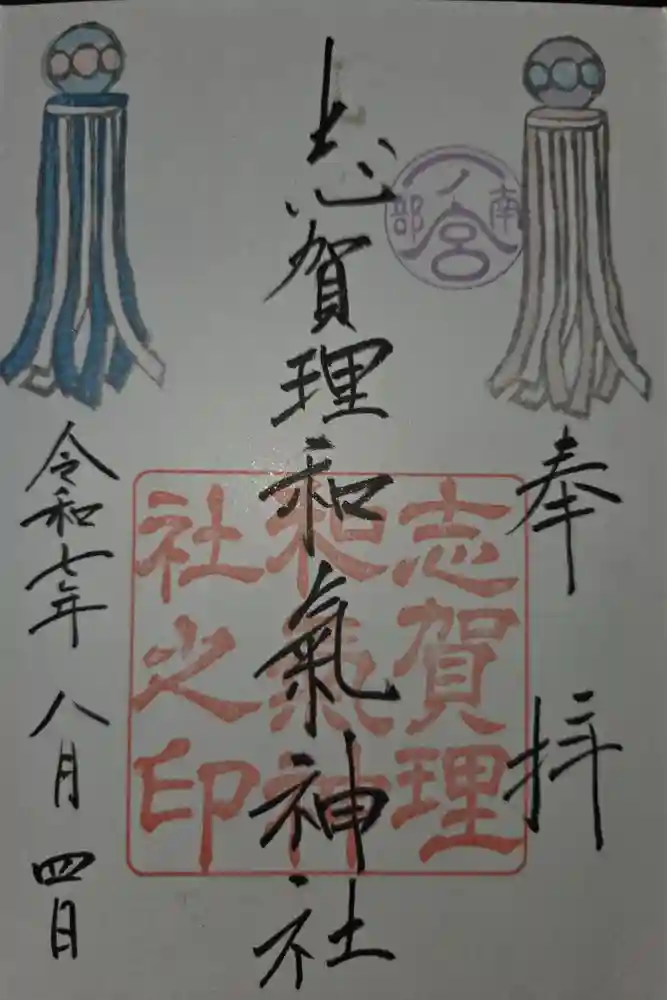 奉拝
志賀理和氣神社
南部
一ノ宮
志賀理
和氣神
社之印
令和七年八月四日